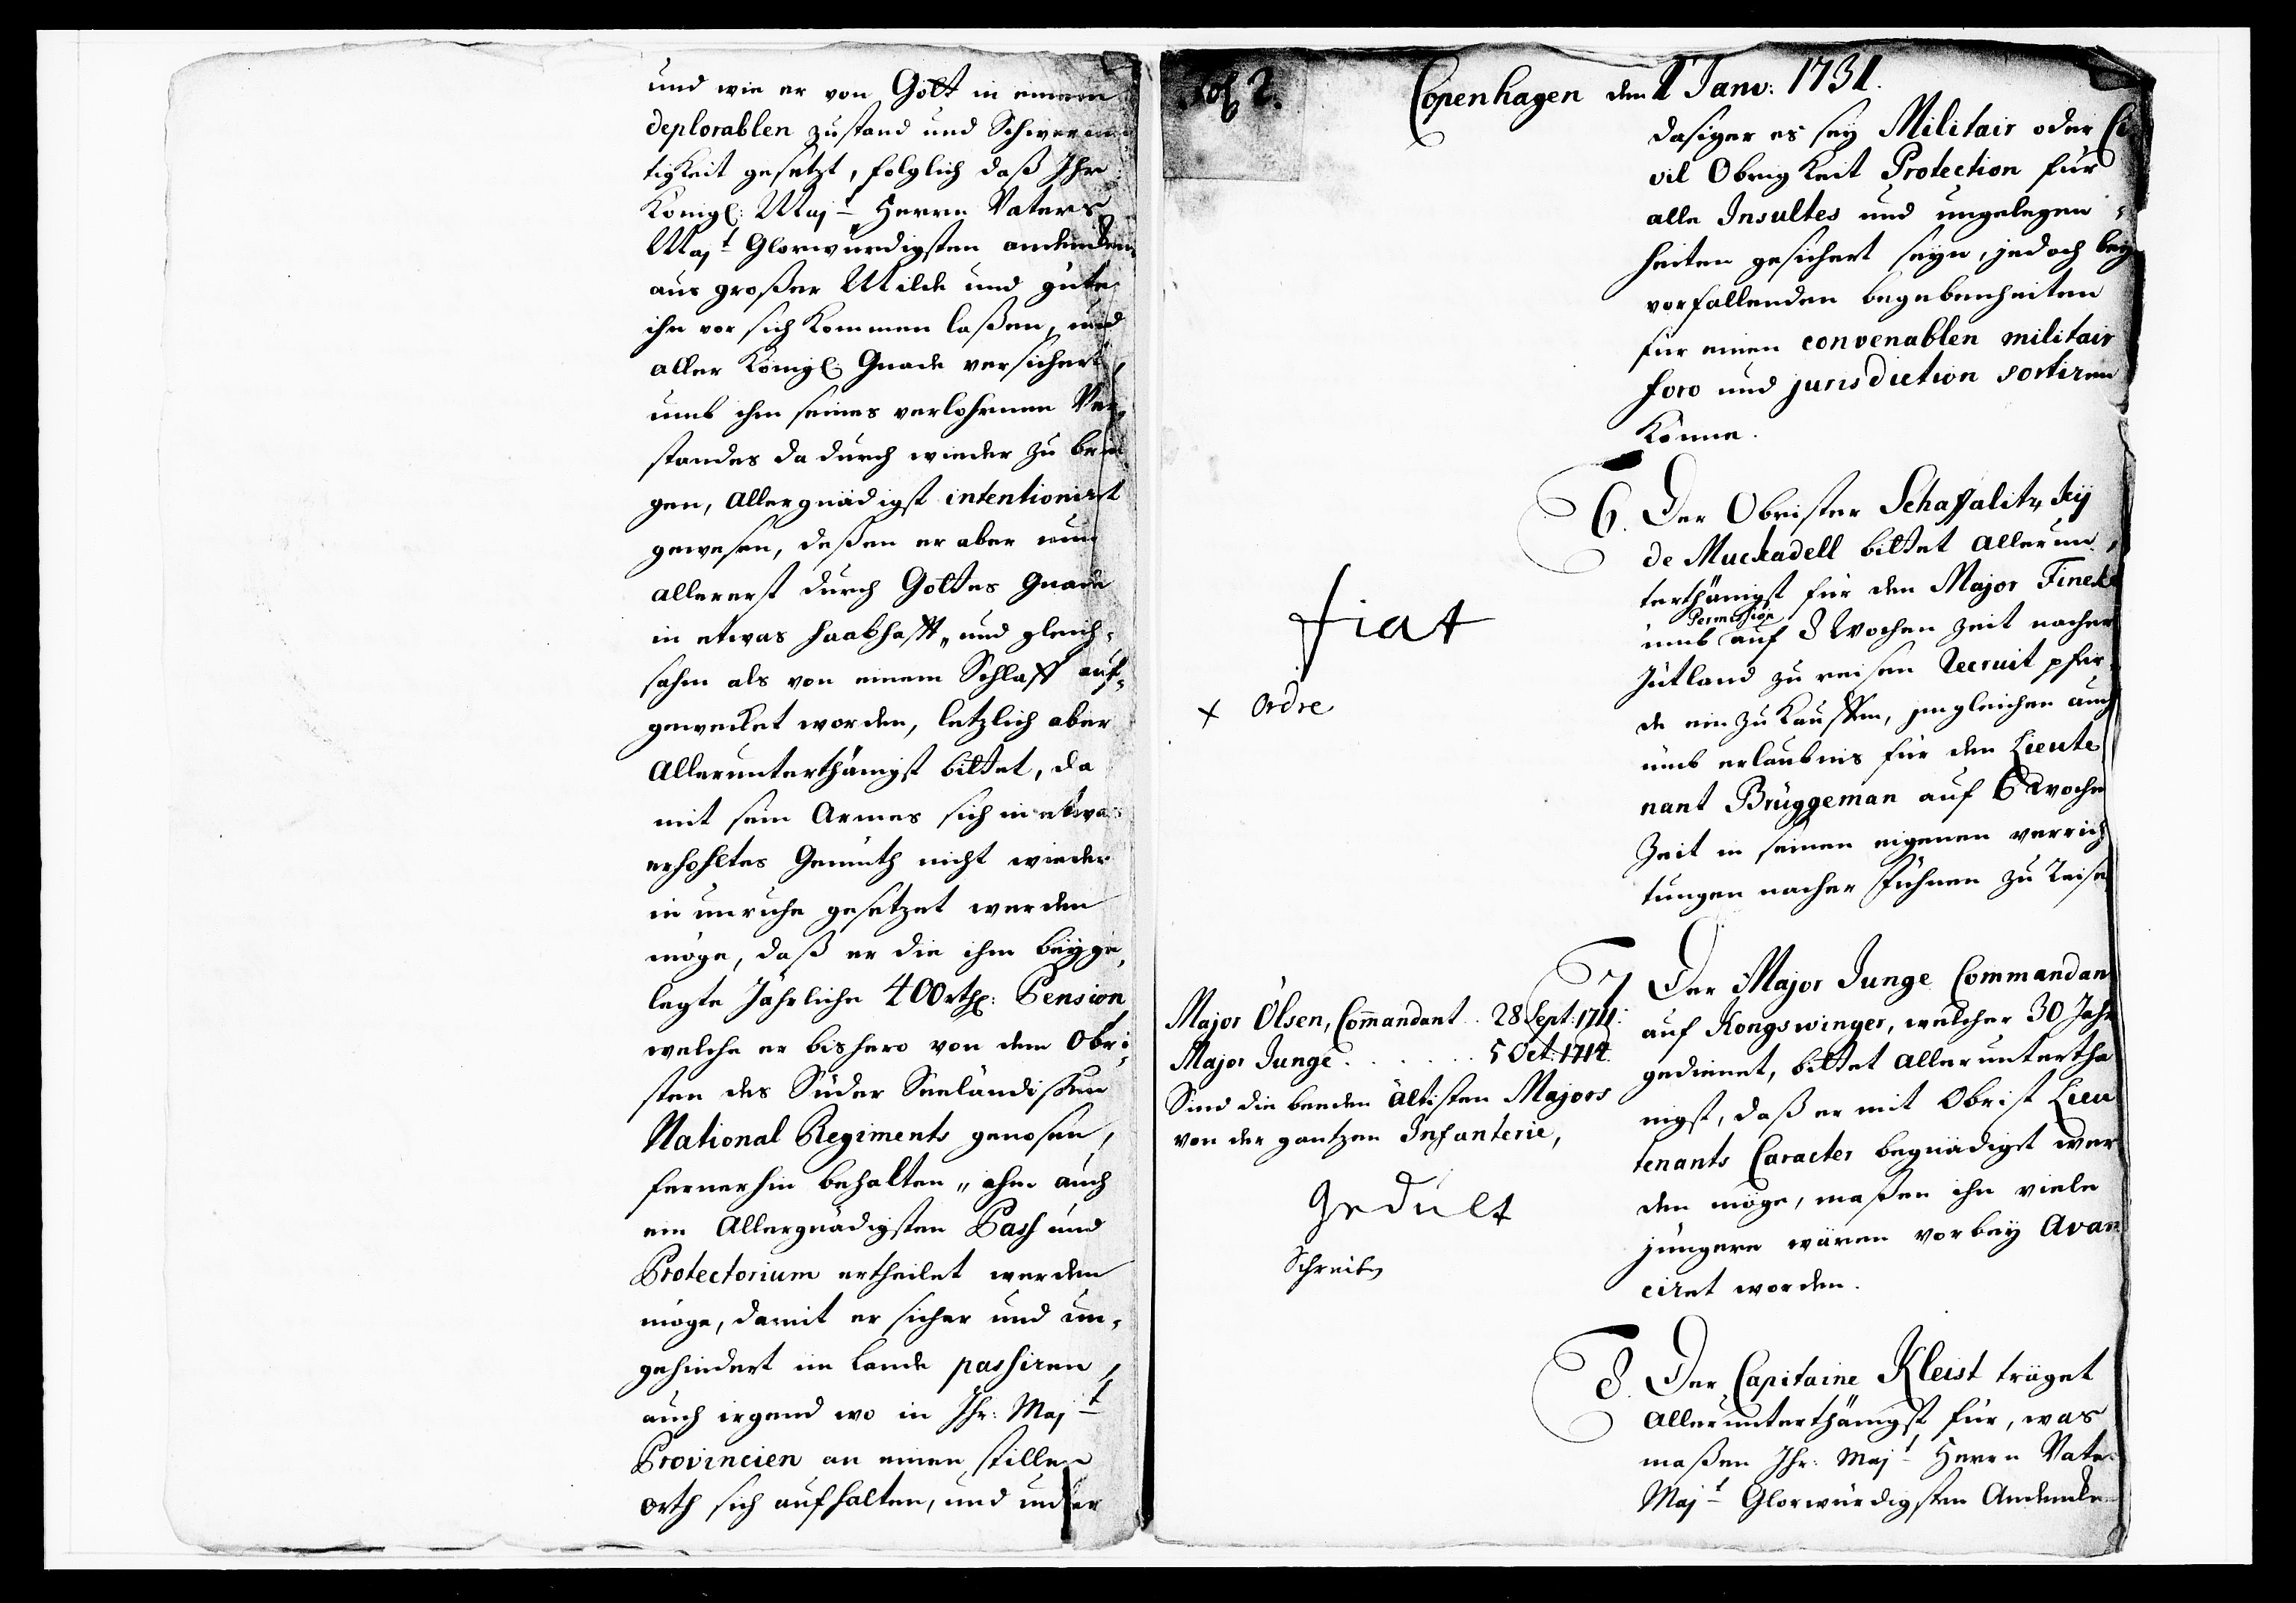 und wie er von Gott in einem
deplorablen zustand und Schwermü
tigkeit gesetzt, folglich daß Ihr
Königl: Majt Herrn Vaters
Majt Glorwürdigsten andencken
aus großer Milde und güte
ihn vor sich kommen laßen, und
aller Königl: Gnade versichert,
umb ihm seines verlohrnen Ver
standes dadurch wieder zu brin
gen, allergnädigst intentioniret
gewesen, deßen er aber nun
allererst durch Gottes Gnade
in etwas haabhafft, und gleich-
sahm als von einem Schlaff auf-
gewecket worden, letzlich aber
Allerunterthänigst bittet, da
mit sein Armes sich in etwas
erhohltes Gemüth nicht wieder
in unruhe gesetzet werden
möge, daß er die ihm beyge,
legte Jährliche 400 rthl: Pension
welche er bishero von dem Obri
sten des Süder Seeländischen
National Regiments genosen,
fernerhin behalten, ihm auch
ein Allergnädigsten Pass und
Protectorium ertheilet werden
möge, damit er sicher und un-
gehindert im Lande passiren,
auch irgend wo in Ihr: Majt
Provincien an einen stillen
orth sich aufhalten, und unter
Fol 2.
Copenhagen den 1 Janv: 1731.
dasiger es sey Militair oder Ci
vil Obrigkeit Protection für
alle Insultes und ungelegen-
heiten gesichert seyn, jedoch bey
vorfallenden begebenheiten
für einen convenablen militair
foro und jurisdiction sortiren
könne.
6. Der Obrister Schaffalitzkÿ
de Muckadell bittet allerun-
terthänigst für den Major Fineke
Permission
umb auf 8 Wochen zeit nacher
Jütland zu reisen Recruit pfer
de ein zu kauffen, imgleichen auch
umb erlaubnis für den Lieute
nant Brüggeman auf 6 Woche
Zeit in seinen eigenen verrich
tungen nacher Fühnen zu Reise
fiat
x ordre
7 Der Major Junge Commandan
auf Kongswinger, welcher 30 Jahr
gedienet, bittet allerunterthä
nigst, daß er mit Obrist Lieu
tenants Caracter begnädigt wer
den möge, maßen ihn viele
jüngere wären vorbey avan
ciret worden.
Major Olsen, Commandant . . 28 Sept: 1711:
Major Junge . . . . . . 5 Oct: 1714.
Sind die beeden ältisten Majors
von der gantzen Infanterie,
Gedult
Schreiben
8. Der Capitaine Kleist träget
allerunterthänigst für, was
maßen Ihr: Majt Herrn Vater
Majt Glorwürdigsten Andencken